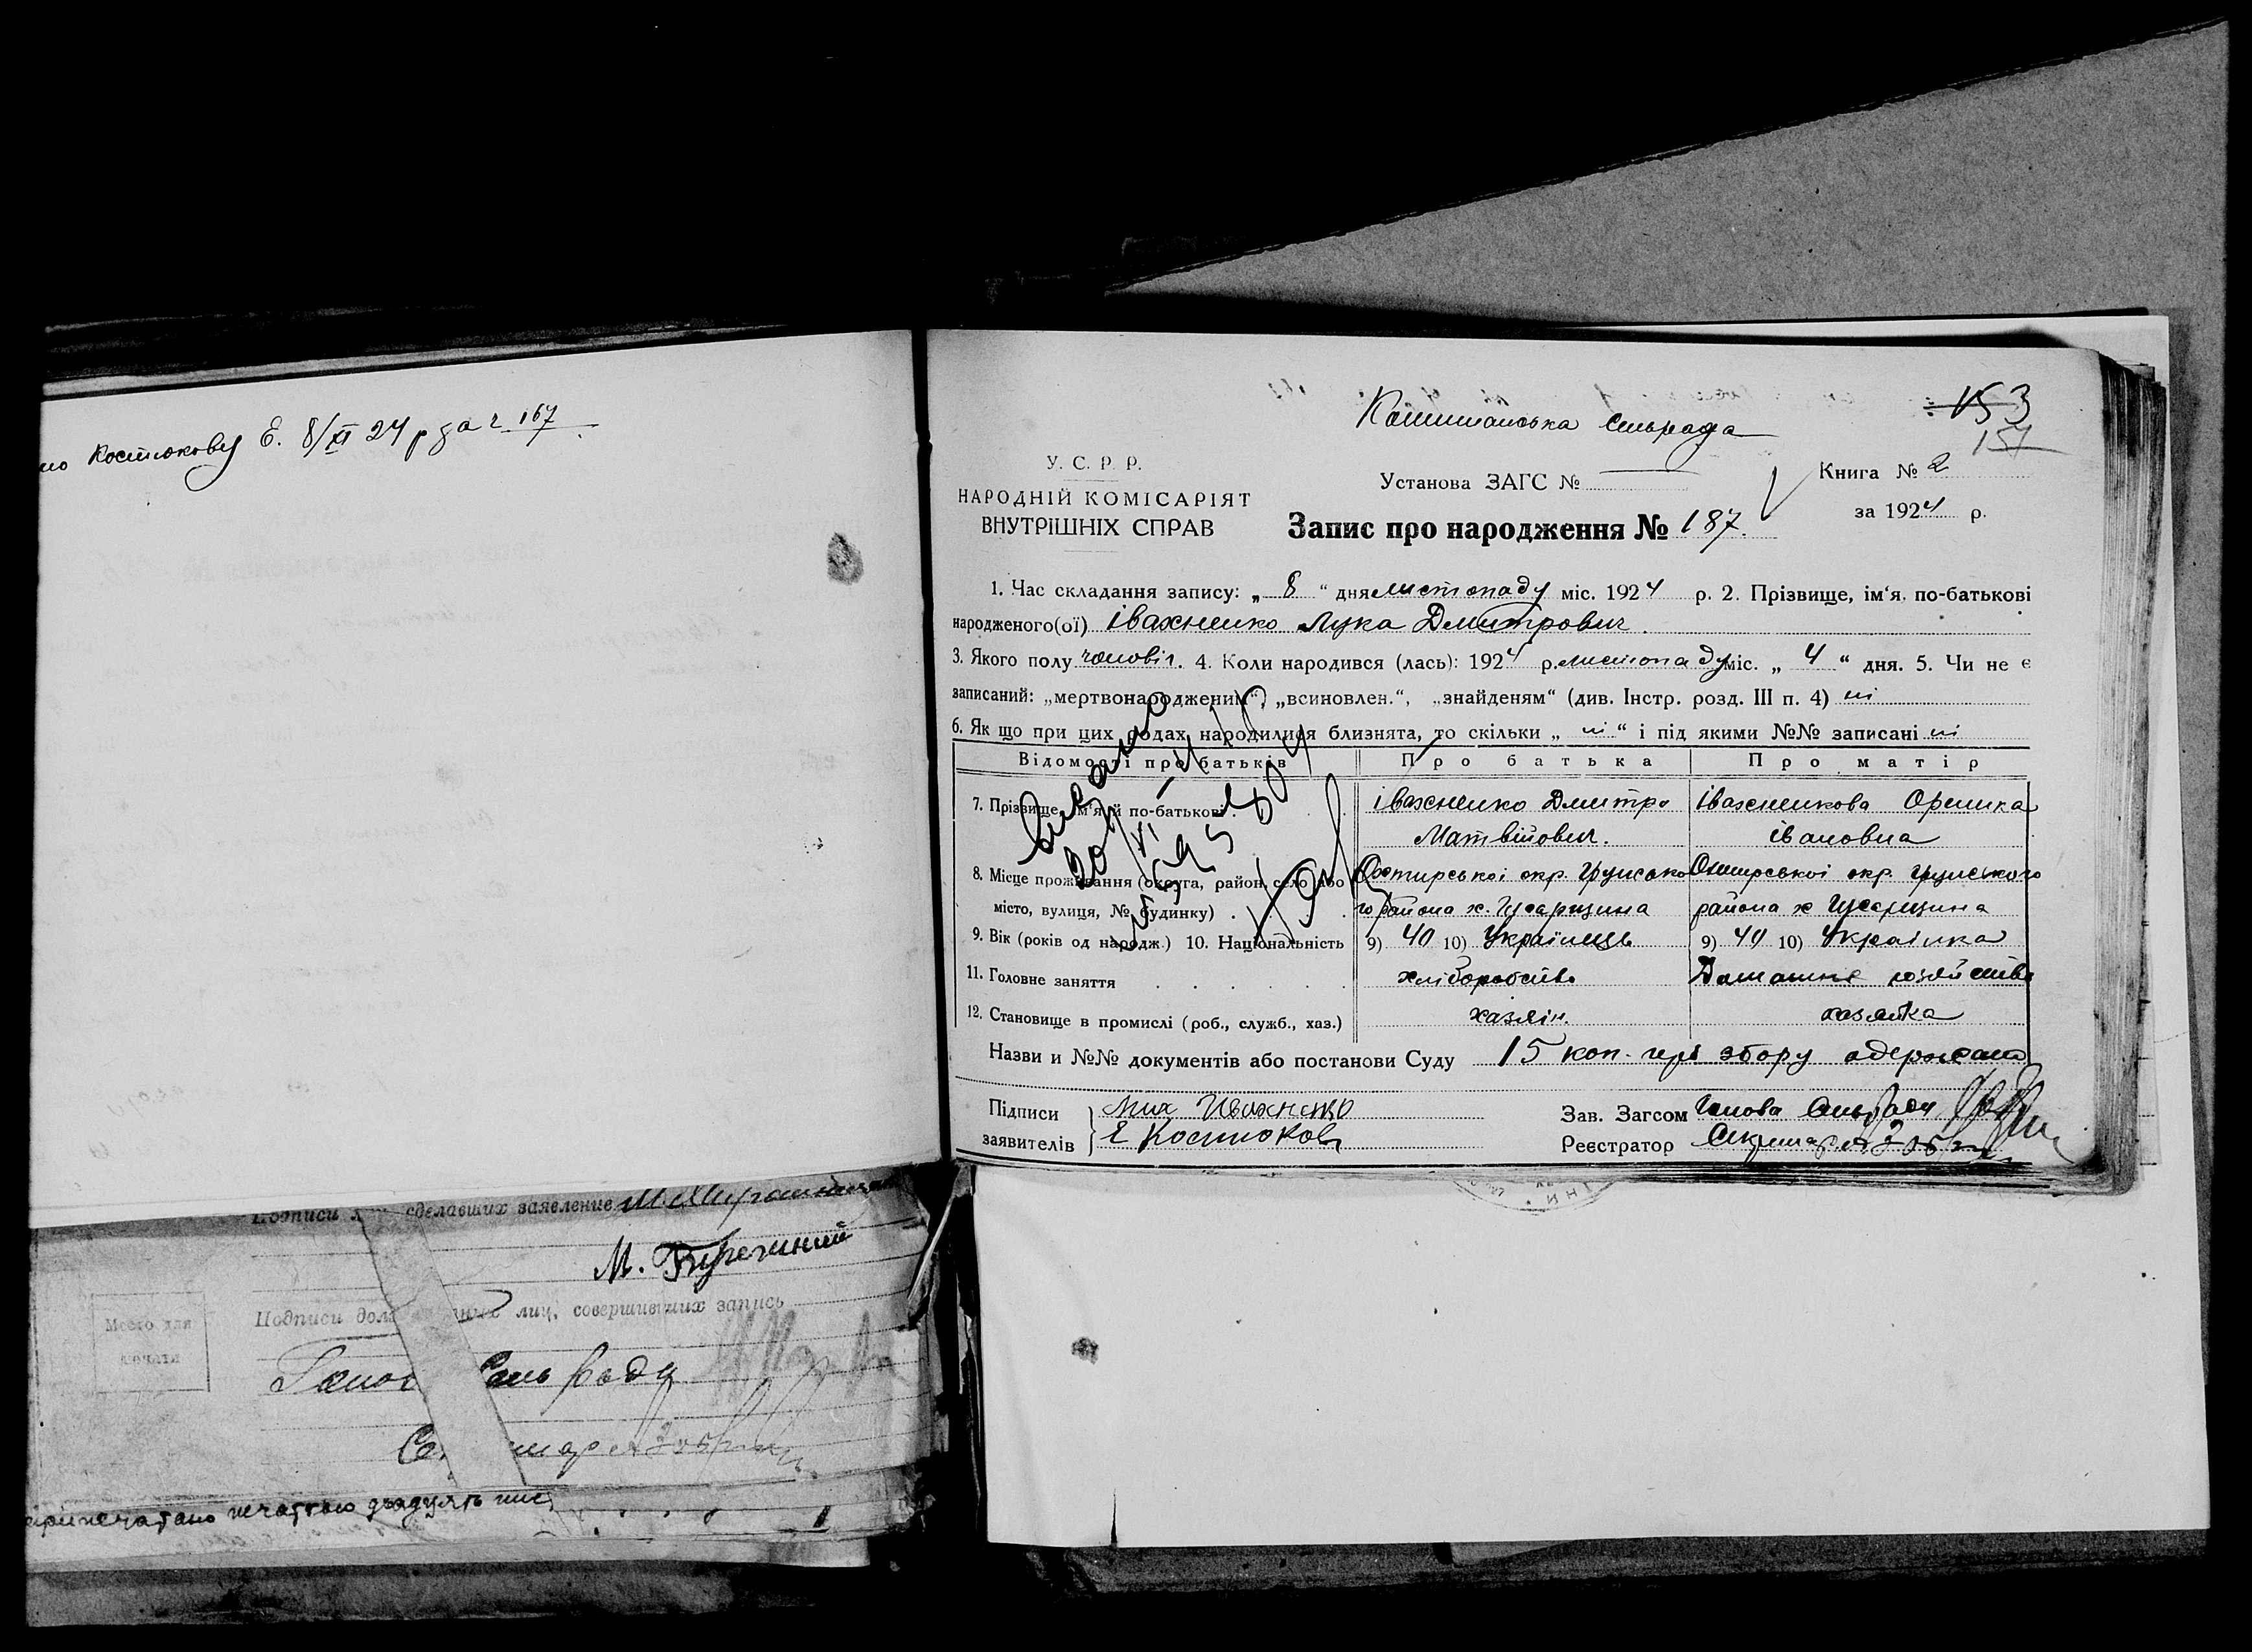 Костюкову Е. 8/XI 24 р за ч 167
Сельрада
153
157
У. С. Р. Р.
НАРОДНІЙ КОМІСАРІЯТ
ВНУТРІШНІХ СПРАВ
Установа ЗАГС №
Книга № 2
за 1924 р.
Запис про народження № 187.
1. Час складання запису: „ 8 “ дня листопаду міс. 1924 р. 2. Прізвище, ім‘я, по-батькові
народженого(ої) Івахненко Лука Дмитрович
3. Якого полу чоловіч. 4. Коли народився (лась): 1924 р. листопаду міс. „ 4 “ дня. 5. Чи не є
записаний: „мертвонародженим“, „всиновлен.“, „знайденям“ (див. Інстр. розд. III п. 4) ні
6. Як що при цих родах народилися близнята, то скільки „ ні “ і під якими №№ записані ні
Відомості про батьків
Про батька
Про матір
7. Прізвище, ім‘я й по-батькові
Івахненко Дмитро
Матвійович.
Івахненкова Оришка
Івановна
8. Місце проживання (округа, район, село або
місто, вулиця, № будинку)
Охтирської окр. Грунсько
го района х. Гусарщина
Охтирської окр. Грунського
района х Гусарщина
9. Вік (років од народж.) 10. Національність
9) 40 10) Українець
9) 40 10) Українка
11. Головне заняття
хліборобство
Домашнє хозяйство
12. Становище в промислі (роб., служб., хаз.)
хазяїн.
хазяйка
Видано
20/VI
Назви и №№ документів або постанови Суду 15 коп. герб збору одержано
Підписи
заявителів
Ивахненко
Е Костюков
Зав. Загсом Голова Сельради
Реєстратор Секретар
Подписи сделавших заявление
М.
Место для
печати
Подписи лиц, совершивших запись
Сельради
печаттю